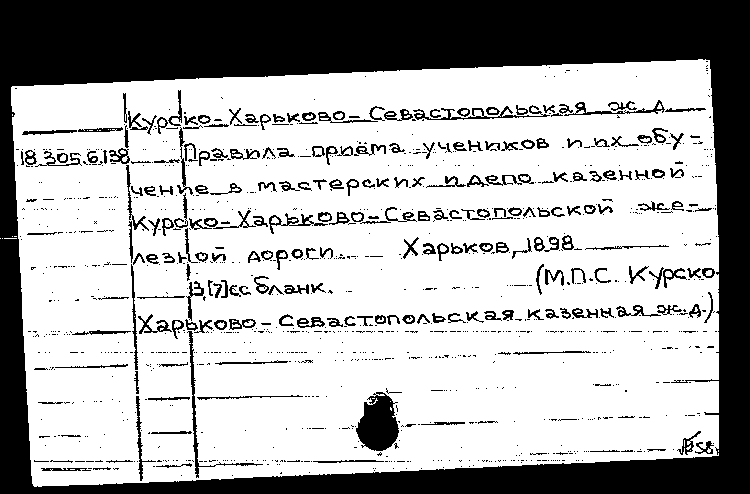 Курско-Харьково-Севастопольская ж.д.
18.305.6.138 Правила приёма учеников и их обу-
чение в мастерских и депо казенной
Курско-Харьково-Севастопольской же-
лезной дороги. Харьков, 1898
13,[7]сс бланк. (М.П.С. Курско-
Харьково-Севастопольская казенная ж.д.).
58